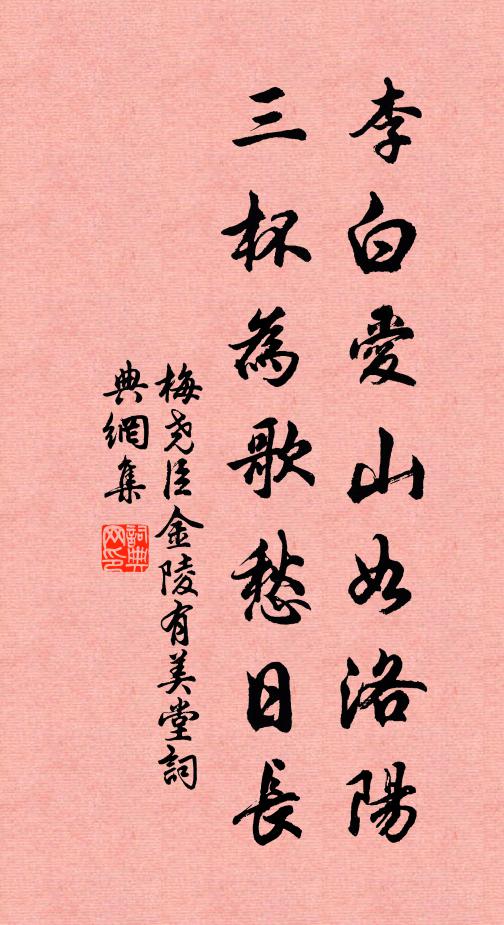 李白愛山如洛陽
三杯為歌愁日長
梅尧臣金陵有美堂詞
典網集
詞典
网印